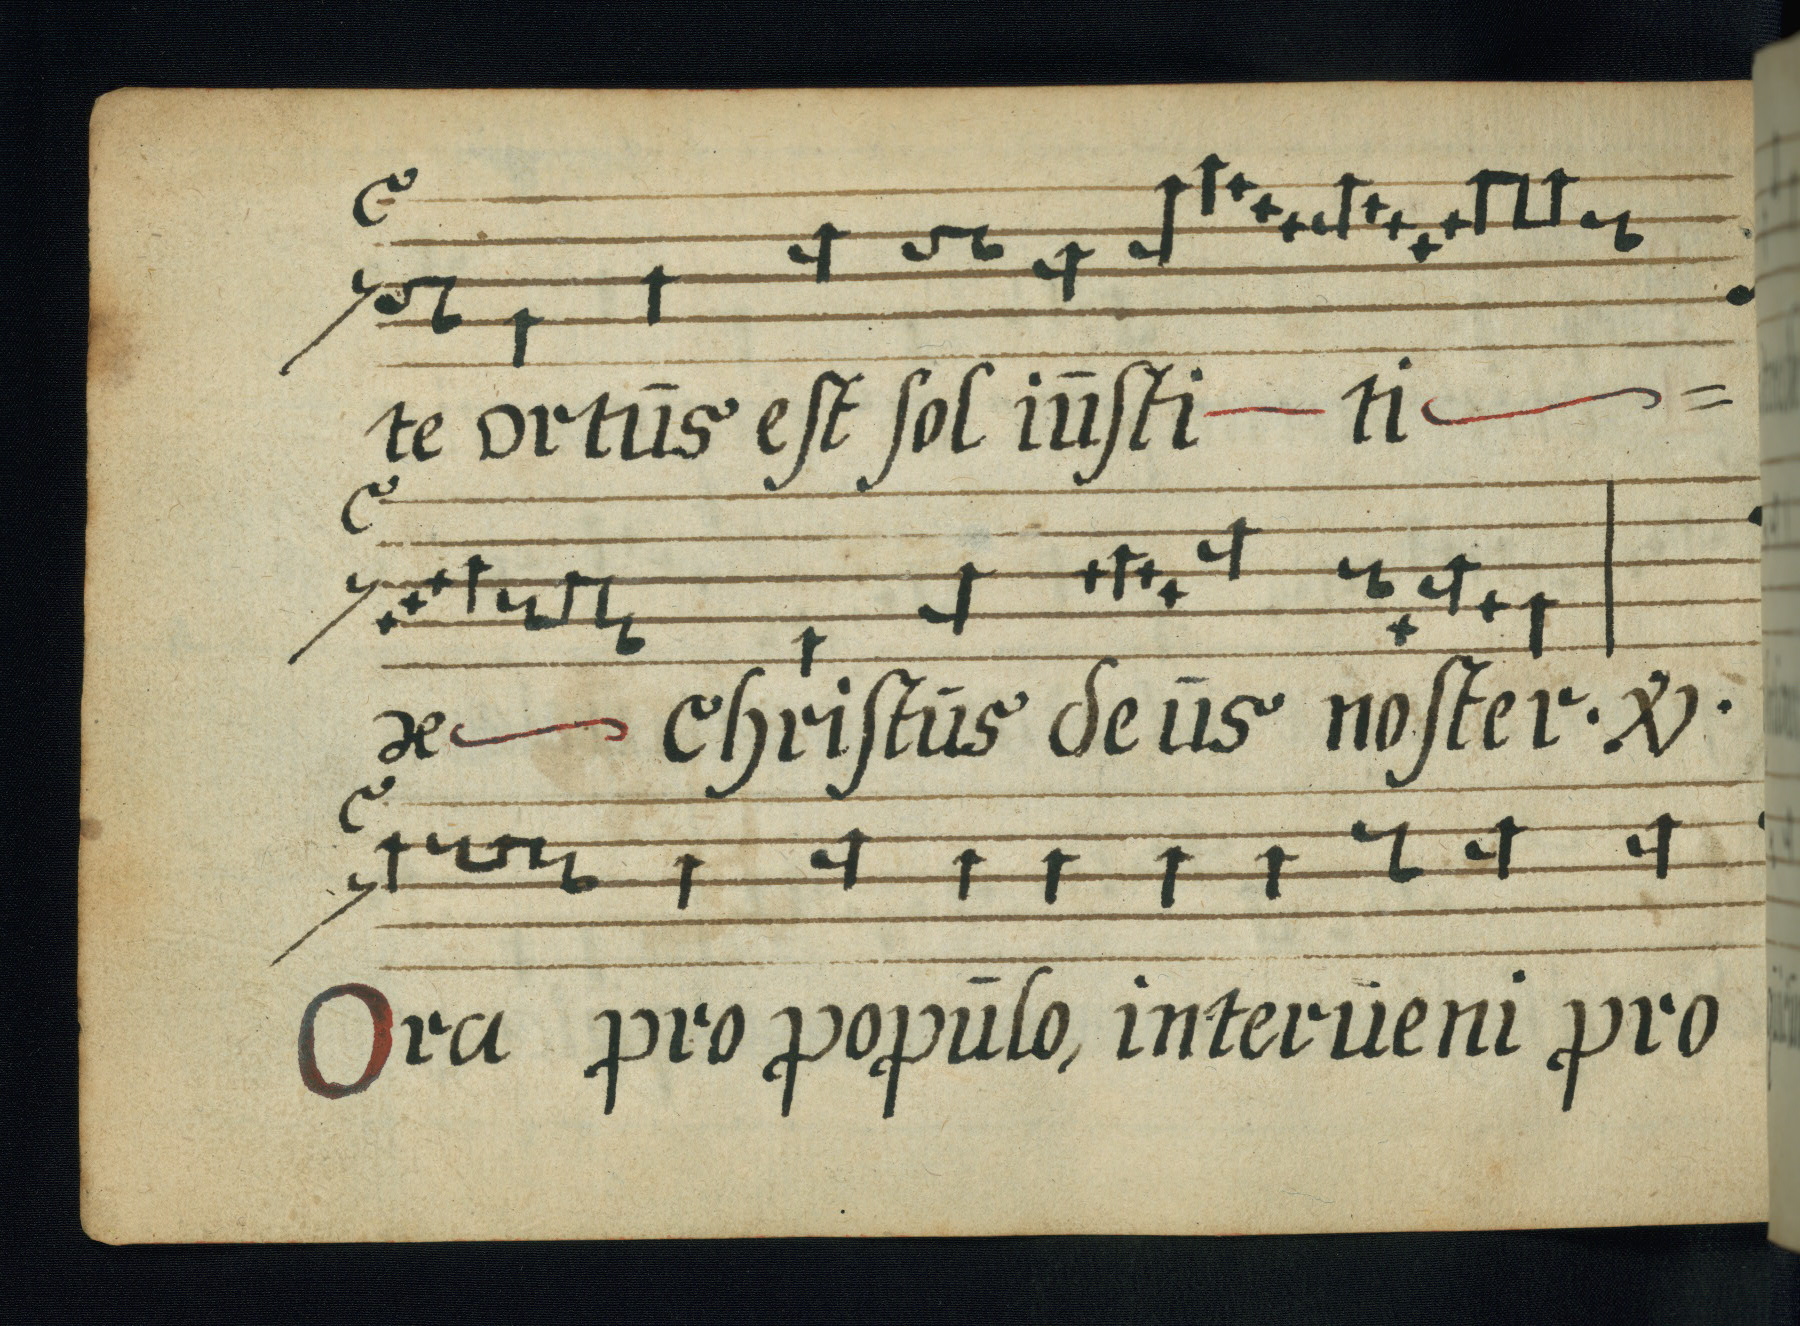 te ortūs eſt ſol iūſti ti =
æ Chriſtūs deūs noſter. ℣.
Ora pro popūlo, interūeni pro